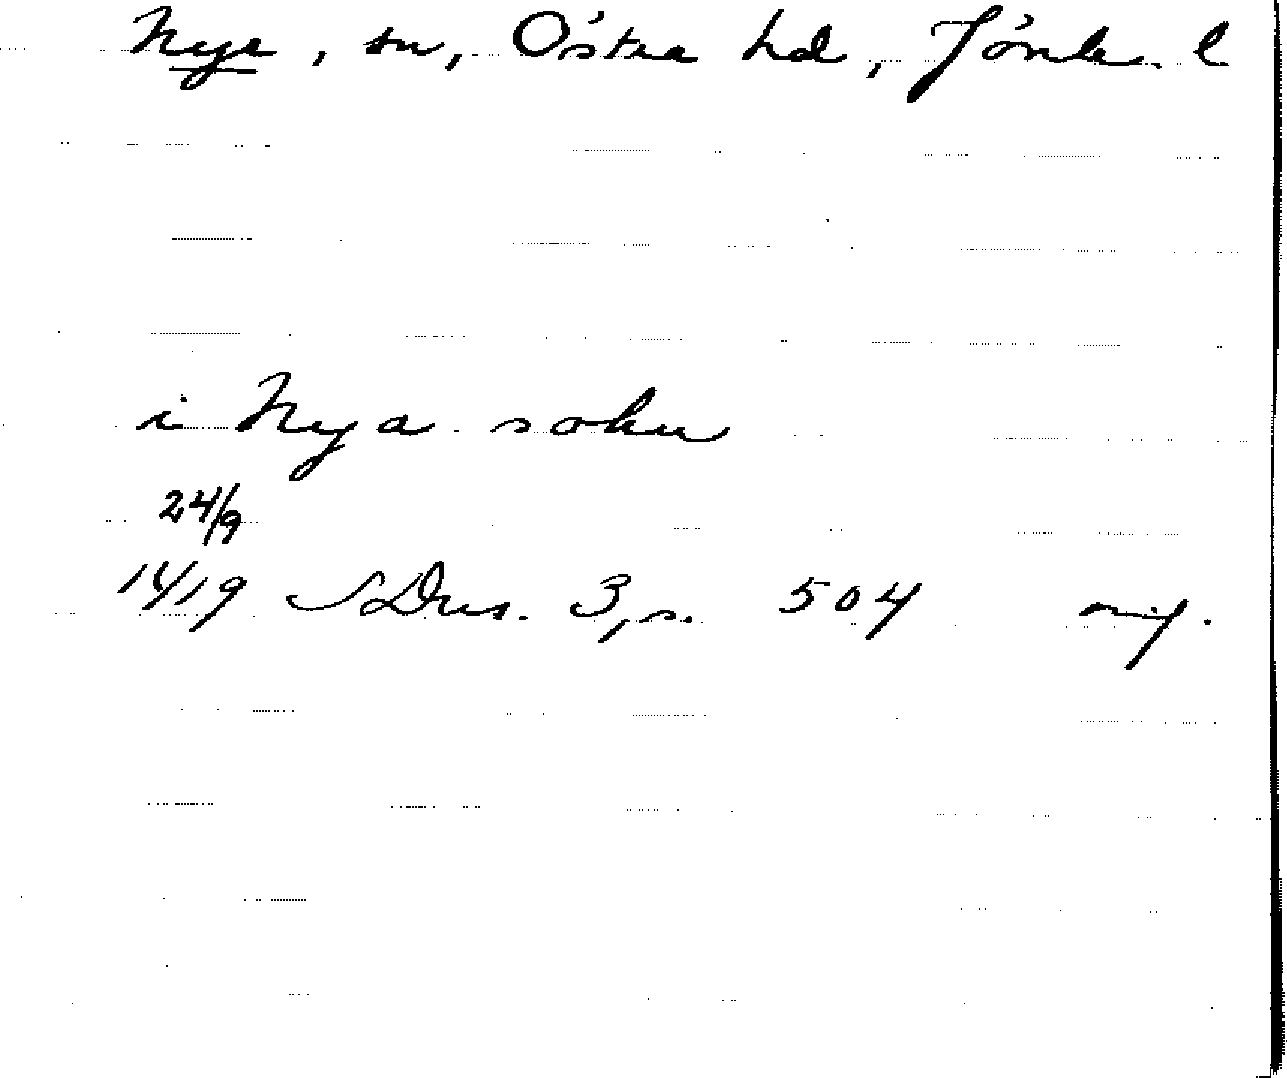 Nye, sn, Östra hd, Jönk. l
i Nya sokn
24/9
1419 SDns. 3, s. 504 orig.